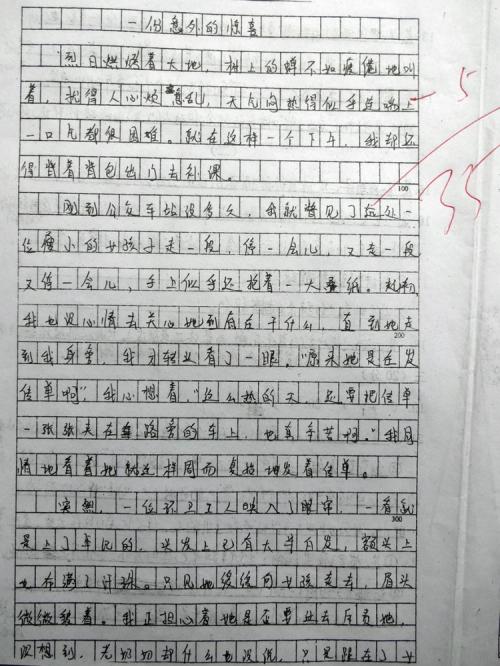 一份意外的惊喜
烈日烘烤着大地，树上的蝉不知疲倦地叫
着，扰得人心烦意乱，天气闷热得似乎连喘上 5
一口气都很困难。就在这样一个下午，我却还
得背着背包出门去补课。 35
100
刚到公交车站没多久，我就瞥见了远处一
位瘦小的女孩子走一段，停一会儿，又走一段
又停一会儿，手上似乎还抱着一大叠纸。起初，
我也没心情去关心她到底在干什么，直到她走
200
到我身旁，我才转头看了一眼。“原来她是在发
传单啊”，我心想着，“这么热的天，还要把传单
一张张夹在路旁的车上，也真辛苦啊。”我同
情地看着她就这样周而复始地发着传单。
突然，一位环卫工人映入了眼帘，一看就
300
是上了年纪的，头发上已有大半白发，额头上
也布满了汗珠。只见她缓缓向女孩走去，眉头
微微皱着。我正担心着她是否要过去斥责她，
没想到，老奶奶却什么也没说，只是跟在了女